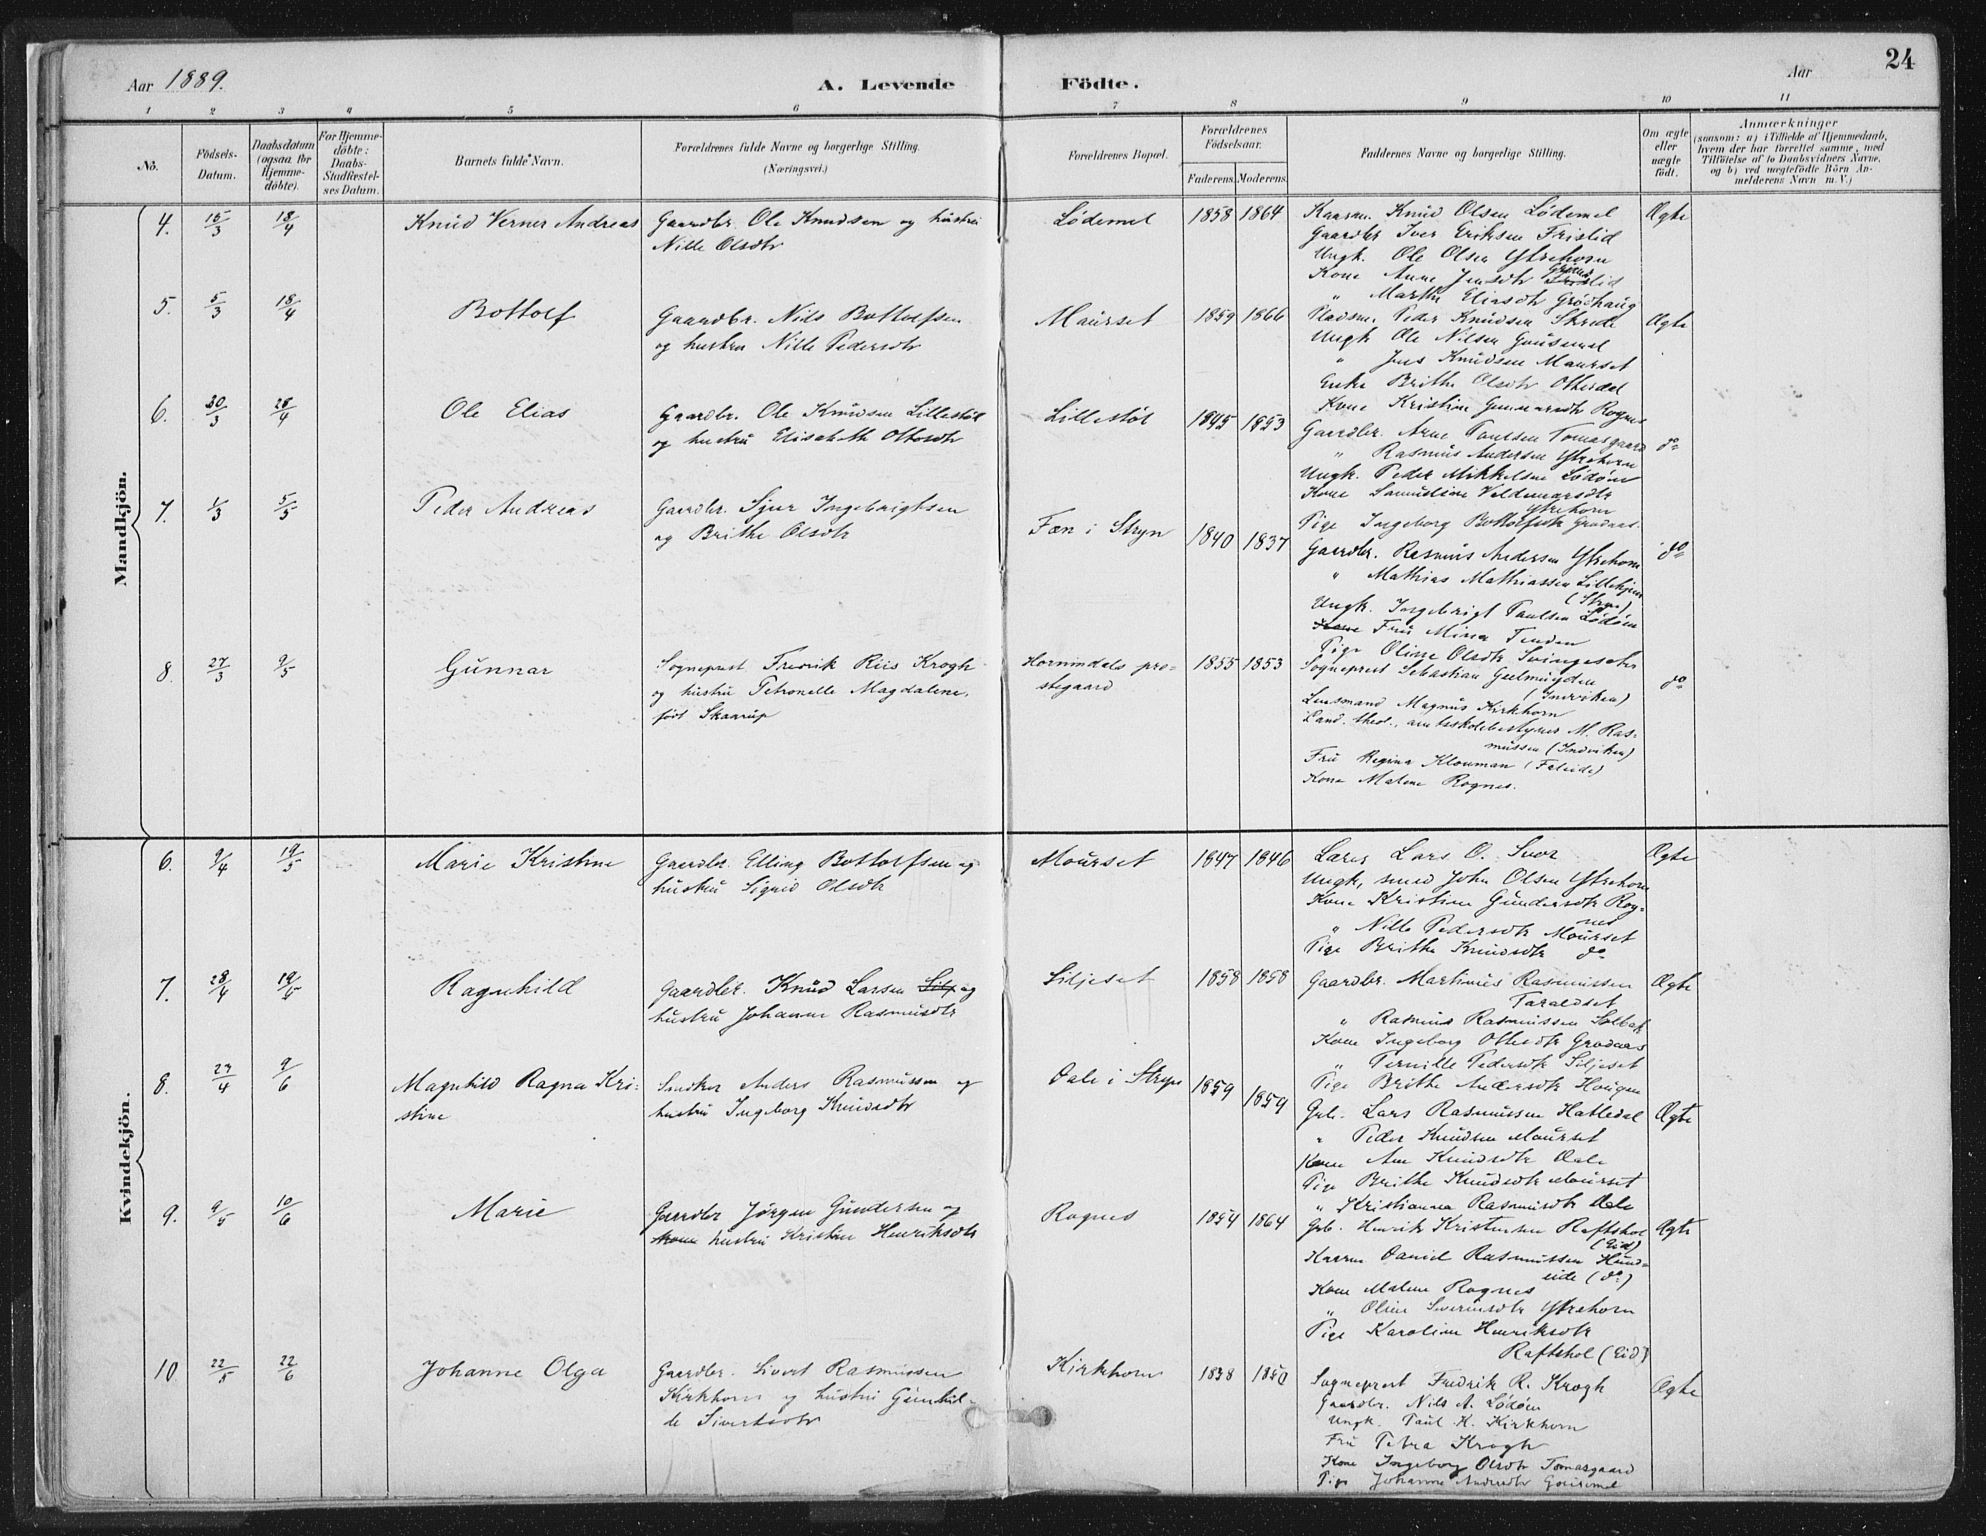 Aar 1889. A. Levende Födte. Aar 24
1 2 3 4 5 6 7 8 9 10 11
No. Födsels-Datum. Daabsdatum (ogsaa for Hjemme-döbte). For Hjemme-döbte: Daabs-Stadfæstel-ses Datum. Barnets fulde Navn. Forældrenes fulde Navne og borgerlige Stilling. (Næringsvei.) Forældrenes Bopæl. Forældrenes Födselsaar. Faderens. Moderens. Faddernes Navne og borgerlige Stilling. Om ægte eller uægte födt. Anmærkninger (saasom: a) i Tilfælde af Hjemmedaab, hvem der har forrettet samme, med Tilföielse af to Daabsvidners Navne, og b) ved uægtefödte Börn An-melderens Navn m. V.)
Mandkjön.
4. 15/3 18/4 Knud Verner Andreas Gaardbr. Ole Knudsen og hustru Lödemel 1858 1864 Kaarm. Knud Olsen Lödemel Ægte
Nille Olsdtr Gaardbr Iver Eriksen Frislid
Ungk. Ole Olsen Ytrehorn
Kone Anne Jensdtr
" Marthe Eliasdtr Grödhaug
5. 5/3 18/4 Bottolf Gaardbr. Nils Bottolfsen Maurset 1859 1866 Pladsm. Peder Knudsen Skrede Ægte
og hustru Nille Pedersdtr Ungk Ole Nilsen Gausemel
" Jens Knudsen Maurset
Enke Brithe Olsdtr Otterdal
Kone Kristine Gunnarsdtr Rognes
6. 30/3 28/4 Ole Elias Gaardbr. Ole Knudsen Lillestöl Lillestöl 1845 1853 Gaardbr. Arne Paulsen Tomasgaard do
og hustru Elisabeth Ottosdtr " Rasmus Andersen Ytrehorn
Ungk. Peder Mikkelsen Lödöen
Kone Samueline Valdemarsdtr
Ytrehorn
Pige Ingeborg Bottolfsdtr Grodaas
7. 1/3 5/5 Peder Andreas Gaardbr. Sjur Ingebrigtsen Fæn i Stryn 1840 1837 Gaardbr. Rasmus Andersen Ytrehorn do
og Brithe Olsdtr " Mathias Mathiassen
(Stryn)
Ungk. Ingebrigt Paulsen Lödöen
Kone Fru Mina Tenden
Pige Oline Olsdtr Svingeseter
8. 27/3 9/5 Gunnar Sogneprest Fredrik Riis Krogh Hornindals pre- 1855 1853 Sogneprest Sebastian Geelmuyden do
og hustru Petronelle Magdalene, stegaard (Indviken)
født Skaarup Lensmand Magnus Kirkhorn
Cand. theol., amtsskolebestyrer M. Ras-
mussen (Indviken)
Fru Regina Klouman (Faleide)
Kone Malene Rognes.
Kvindekjön.
6. 9/4 19/5 Marie Kristine Gaardbr. Elling Bottolfsen og Mourset 1847 1846 Lærer Lars O. Svor Ægte
hustru Sigrid Olsdtr Ungk, smed John Olsen Ytrehorn
Kone Kristine Gundersdtr Rog-
nes
" Nille Pedersdtr Mourset
Pige Brithe Knudsdtr do
7. 28/4 19/5 Ragnhild Gaardbr. Knud Larsen Silj og Siljeset 1858 1858 Gaardbr. Martinus Rasmussen Ægte
hustru Johanne Rasmusdtr Taraldset
" Rasmus Rasmussen Solbak
Kone Ingeborg Ottesdtr Grodaas
" Pernille Pedersdtr Siljeset
Pige Brithe Andersdtr Hougen
8. 27/4 9/6 Magnhild Ragna Kri- Snedker Anders Rasmussen og Dale i Stryn 1859 1859 Gbr. Lars Rasmussen Hatledal Ægte
stine hustru Ingeborg Knudsdtr " Peder Knudsen Mourset
Kone Ane Knudsdtr Dale
Pige Brithe Knudsdtr Mourset
" Kristianna Rasmusdtr Dale
9. 9/5 10/6 Marie Gaardbr Jörgen Gundersen og Rognes 1854 1864 Gbr. Henrik Kristensen Raftshol Ægte
kone hustru Kristine Henriksdtr (Eid)
Daniel Rasmussen Hund-
eide (do)
Kone Malene Rognes
" Oline Severinsdtr Ytrehorn
Pige Karoline Henriksdtr
Raftshol (Eid)
10 22/5 22/6 Johanne Olga Gaardbr. Sivert Rasmussen Kirkhorn 1838 1850 Sogneprest Fredrik R. Krogh Ægte
Kirkhorn og hustru Gunhil- Gaardbr. Nils A. Lödöen
de Sivertsdtr Ungk. Paul K. Kirkhorn
Fru Petra Krogh
Kone Ingeborg Olsdtr Tomasgaard
Pige Johanne Andersdtr Gousemel